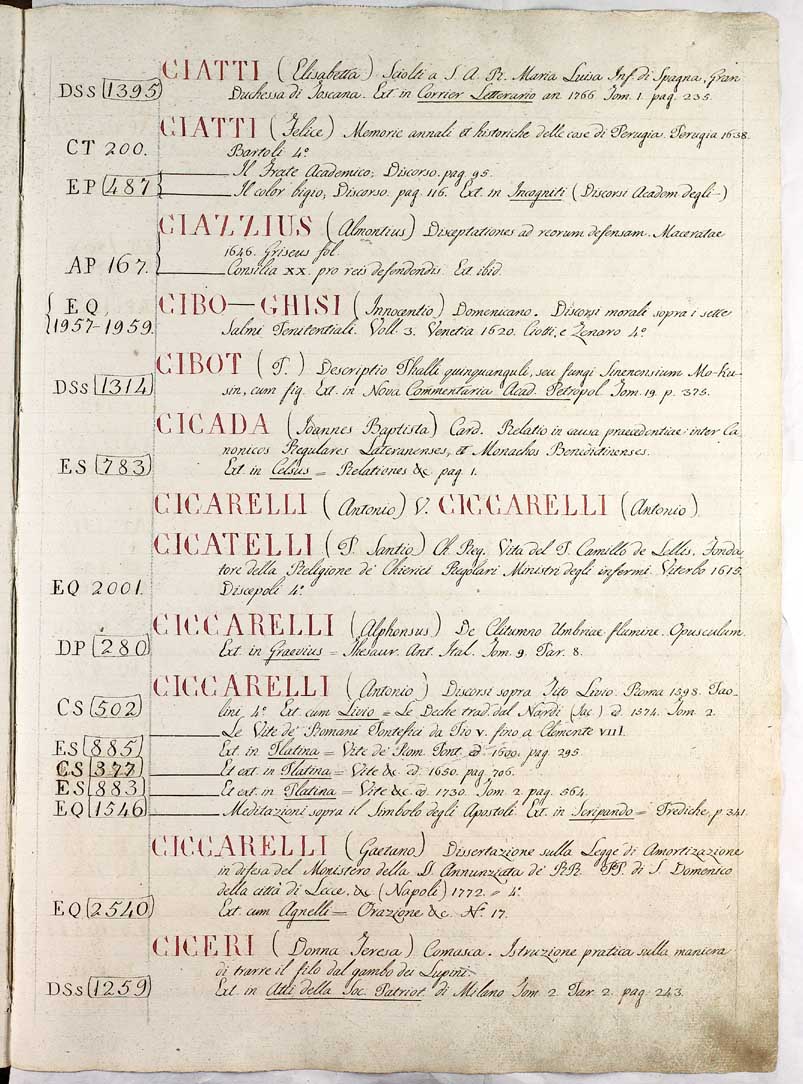 CIATTI (Elisabetta) Sciolti a S. A. R. Maria Luisa Inf. di Spagna, Gran
DSs 1395 Duchessa di Toscana. Ext in Corrier Letterario an 1766 Tom. 1. pag. 235.
CIATTI (Felice) Memorie annali et historiche delle cose di Perugia. Perugia 1638.
CT 200. Bartoli 4º
Il Frate Academico; Discorso. pag. 95.
EP 487 Il color bigio; Discorso. pag. 116. Ext. in Incogniti (Discorsi Academ degli-)
CIAZZIUS (Almontius) Disceptationes ad reorum defensam. Maceratae
1646. Griseus fol.
AP 167. Consilia XX. pro reis defendendis. Ext ibid.
EQ CIBO-GHISI (Innocentio) Domenicano. Discorsi morali sopra i sette
1957-1959. Salmi Penitentiali. Voll. 3. Venetia 1620. Ciotti, e Zenaro 4º
CIBOT (P.) Descriptio Phalli quinquanguli, seu fungi Sinensium Mo-ku-
DSs 1314 sin, cum fig. Ext. in Nova Commentaria Acad. Petropol Tom. 19. p. 375.
CICADA (Joannes Baptista) Card. Relatio in causa praecedentiae inter Ca-
nonicos Regulares Lateranenses, et Monachos Benedictinenses.
ES 783 Ext. in Celsus = Relationes &c. pag 1.
CICARELLI (Antonio) V. CICCARELLI (Antonio).
CICATELLI (P. Santio) Ch. Reg. Vita del P. Camillo de Lellis, Fonda-
tore della Religione de' Chierici Regolari Ministri degli infermi. Viterbo 1615.
EQ 2001. Discepoli 4º
CICCARELLI (Alphonsus) De Clitumno Umbriae flumine. Opusculum.
DP 280 Ext. in Graevius = Thesaur. Ant. Ital. Tom. 9. Par. 8.
CICCARELLI (Antonio) Discorsi sopra Tito Livio. Roma 1598. Pao-
CS 502 lini 4º Ext. cum Livio = Le Deche trad. dal Nardi (Jac) ed. 1574. Tom. 2.
Le Vite de' Romani Pontefici da Pio V. fino a Clemente VIII.
ES 885 Ext. in Platina = Vite de' Rom. Pont. ed. 1600. pag. 295.
CS 377 Et ext. in Platina = Vite &c. ed. 1650. pag. 706.
ES 883 Et ext. in Platina = Vite &c. ed. 1730. Tom. 2. pag. 564.
EQ 1546 Meditazioni sopra il Simbolo degli Apostoli. Ext. in Seripando = Prediche, p 341.
CICCARELLI (Gaetano) Dissertazione sulla Legge di Amortizazione
in difesa del Monistero della SS. Annunziata de' RR. PP. di S. Domenico
della città di Lecce. &c (Napoli) 1772. = 4º
EQ 2540 Ext. cum Agnelli = Orazione &c. Nº. 17.
CICERI (Donna Teresa) Comasca. Istruzione pratica sulla maniera
di trarre il filo dal gambo dei Lupini.
DSs 1259 Ext. in Atti della Soc. Patriot. di Milano Tom 2. Par 2. pag. 243.